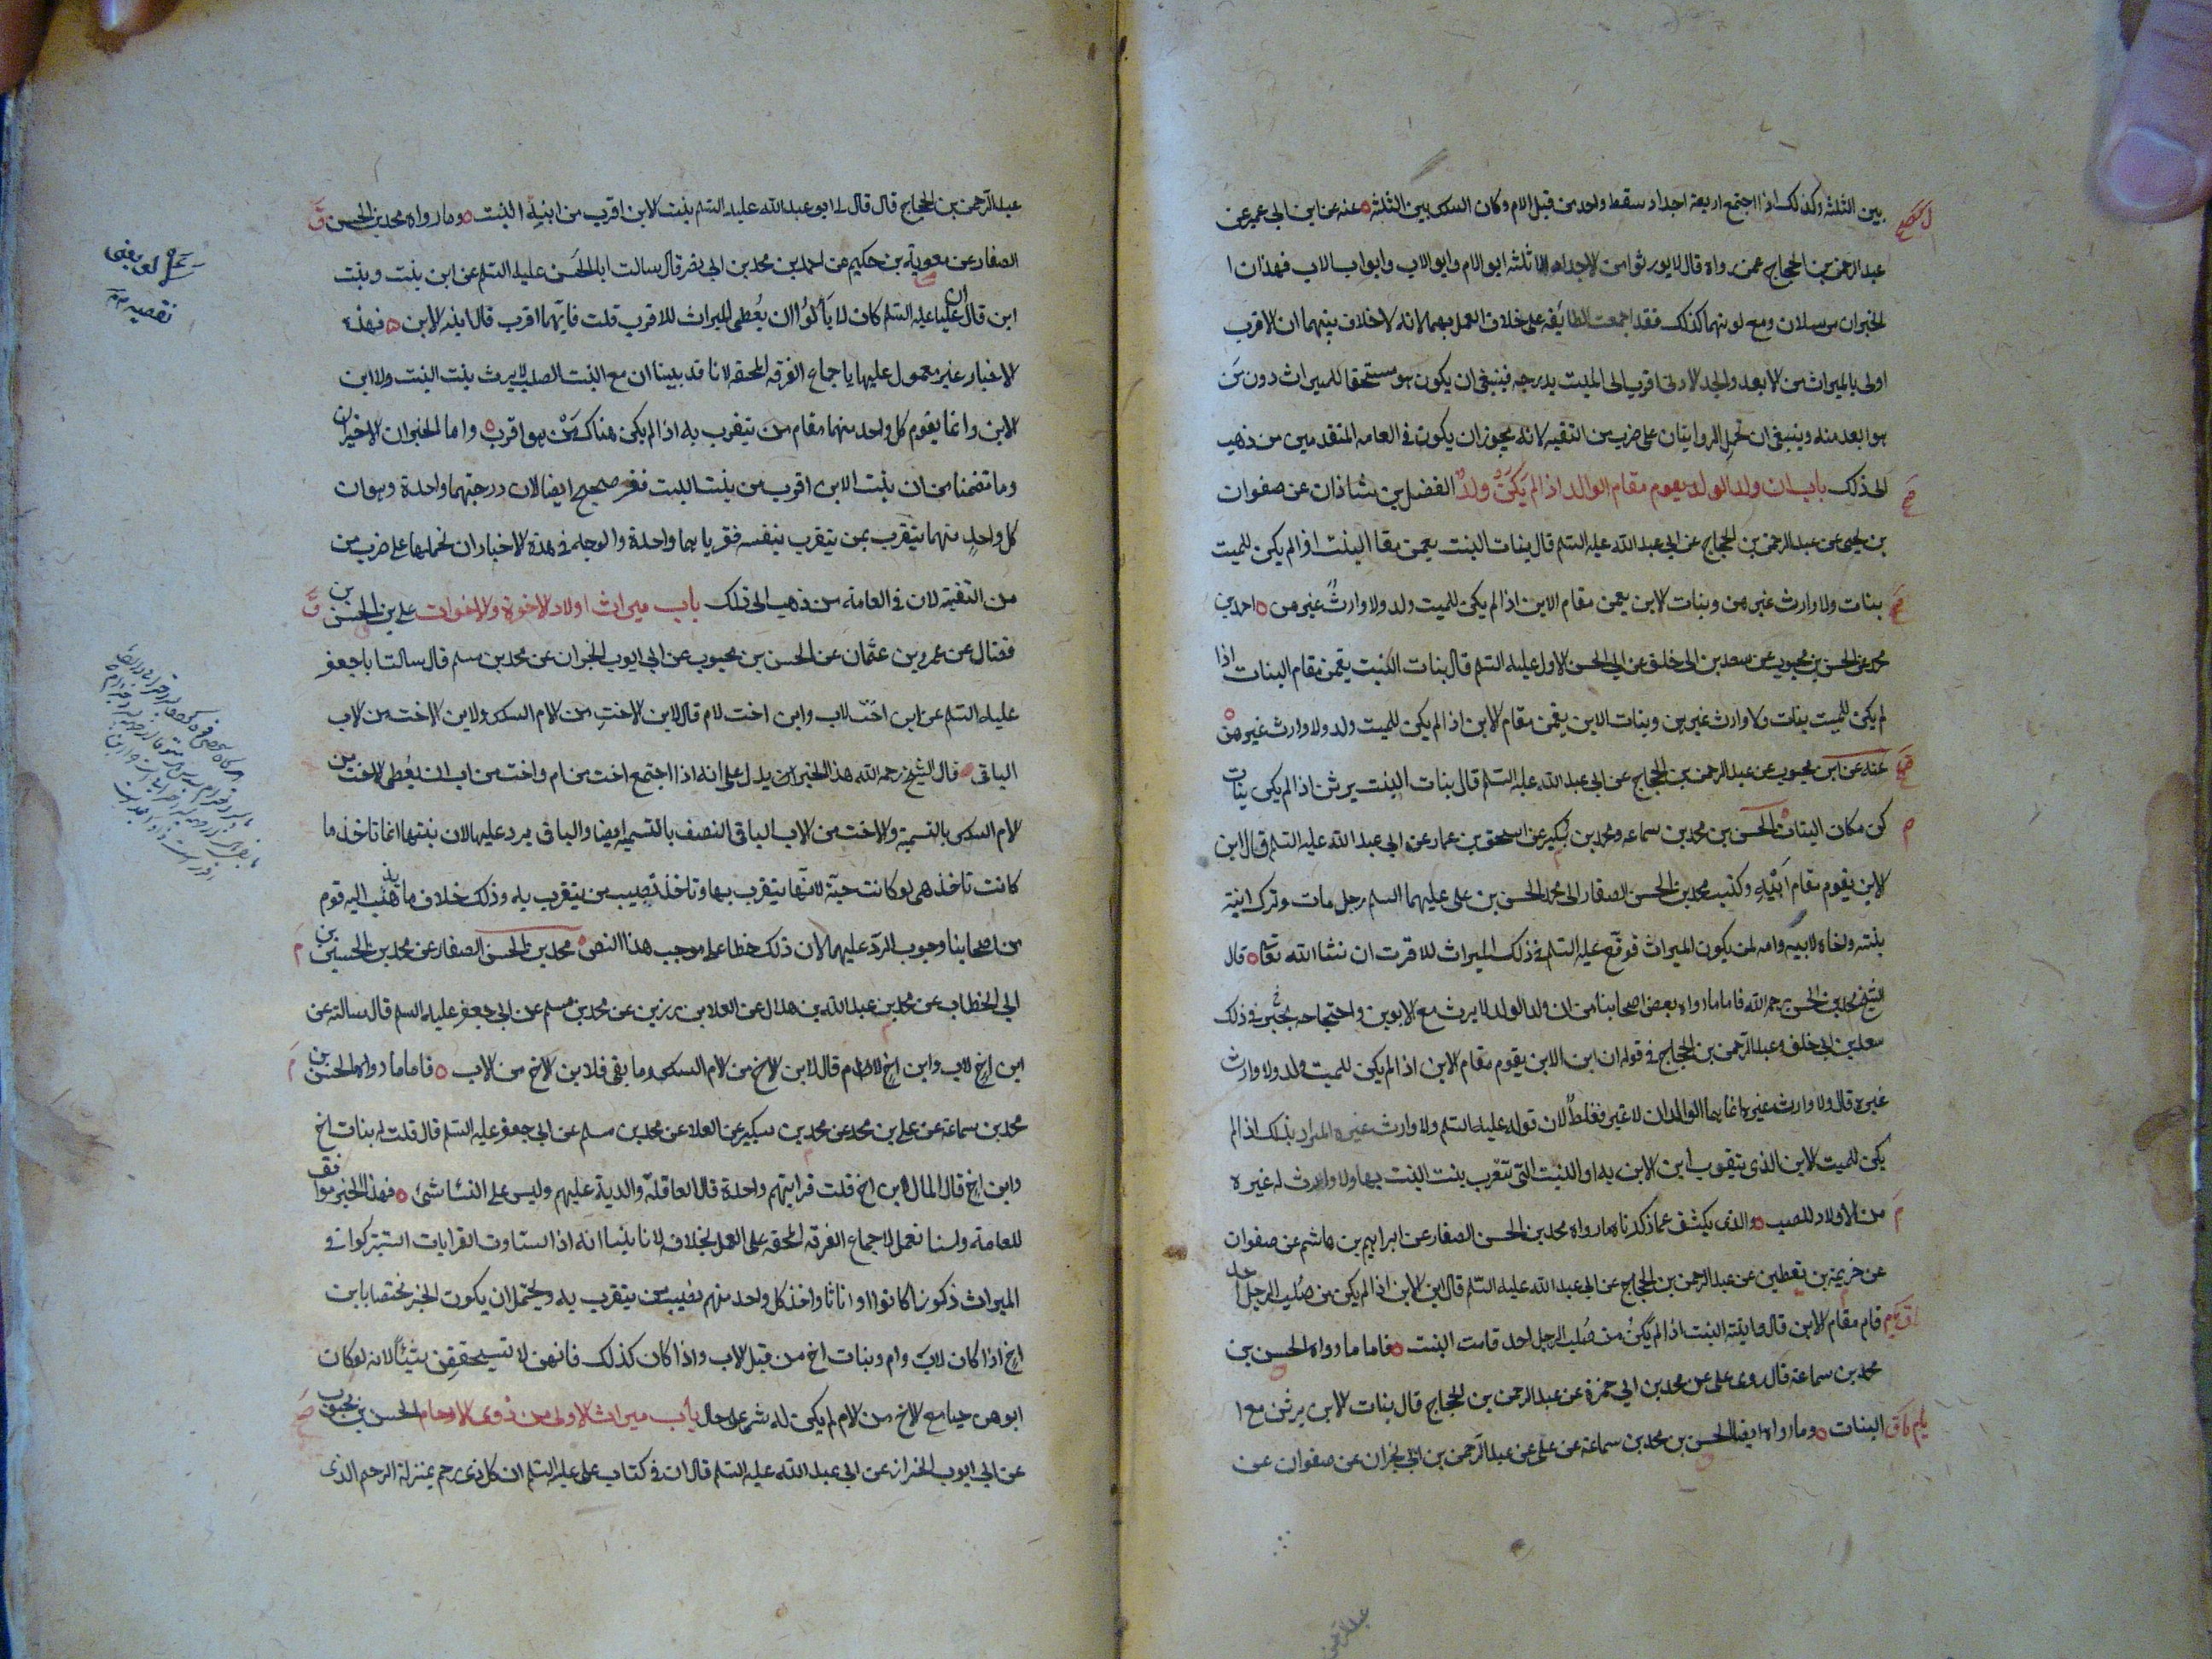 بين الثلثه وكذلك اذا اجتمع اربعة اجداد سقط واحد من قبل الام وكان السدس بين الثلثه عنه عن ابن ابي عمير عن
عبد الرحمن بن الحجاج عمن رواه قال لا يورثوا من الاجداد الا ثلثه ابو الام وابو الاب وابو اب الاب فهذان ا
الخبران مرسلان ومع كونهما كذلك فقد اجمعت الطائفه على خلاف العمل بهما لانه لا خلاف بينهما ان الاقرب
اولى بالميراث من الابعد والجد الادنى اقرب الى الميت بدرجه فينبغي ان يكون هو مستحقا للميراث دون من
هو ابعد منه وينبغي ان تحمل الروايتان على ضرب من التقيه لانه يجوز ان يكون في العامه المتقدمين من ذهب
الى ذلك باب ان ولد الولد يقوم مقام الوالد اذا لم يكن ولد الفضل بن شاذان عن صفوان
بن يحيى عن عبد الرحمن بن الحجاج عن ابي عبد الله عليه السلم قال بنات البنت يقمن مقا البنت اذا لم يكن للميت
بنات ولا وارث غيرهن وبنات الابن يقمن مقام الابن اذا لم يكن للميت ولد ولا وارث غيرهن احمد بن
محمد عن الحسن بن محبوب عن سعد بن ابي خلف عن ابي الحسن الاول عليه السلم قال بنات البنت يقمن مقام البنات اذا
لم يكن للميت بنات ولا وارث غيرهن وبنات الابن يقمن مقام الابن اذا لم يكن للميت ولد ولا وارث غيرهن
عنه عن ابن محبوب عن عبد الرحمن بن الحجاج عن ابي عبد الله عليه السلم قال بنات البنت يرثن اذا لم يكن بنات
كن مكان البنات الحسن بن محمد بن سماعه ومحمد بن سكين عن اسحق بن عمار عن ابي عبد الله عليه السلم قال ابن
الابن يقوم مقام ابيه وكتب محمد بن الحسن الصفار الى محمد الحسن بن علي عليهما السلم رجل مات وترك ابنة
بنته واخاه لابيه وامه لمن يكون الميراث فوقع عليه السلم في ذلك الميراث للاقرب ان شا الله تعا قال
الشيخ محمد بن الحسن رحمه الله فاما ما رواه بعض اصحابنا من ان ولد الولد لا يرث مع الابوين واحتجاجه بخبر في ذلك
سعد بن ابي خلف وعبد الرحمن بن الحجاج في قوله ان ابن الابن يقوم مقام الابن اذا لم يكن للميت ولد ولا وارث
غيره قال ولا وارث غيره انما هما الوالدان لا غير فغلط لان قوله عليه السلم ولا وارث غيره المراد بذلك اذا لم
يكن للميت الابن الذي يتقرب ابن الابن به او البنت التي تتقرب بنت البنت بها ولا وارث له غيره
من الاولاد للصلب والذي يكشف عما ذكرناه ما رواه محمد بن الحسن الصفار عن ابراهيم بن هاشم عن صفوان
عن خزيمة بن يقطين عن عبد الرحمن بن الحجاج عن ابي عبد الله عليه السلم قال ابن الابن اذا لم يكن من صلب الرجل احد
قام مقام الابن قال وابنة البنت اذا لم يكن من صلب الرجل احد قامت البنت فاما ما رواه الحسن بن
محمد بن سماعه قال روى علي عن محمد بن ابي حمزة عن عبد الرحمن بن الحجاج قال بنات الابن يرثن مع ا
البنات وما رواه ايضا الحسن بن محمد بن سماعة عن علي عن عبد الرحمن بن ابي نجران عن صفوان عن
عبد الرحمن
عبد الرحمن بن الحجاج قال قال لي ابو عبد الله عليه السلم بنت الابن اقرب من ابنة البنت وما رواه محمد بن الحسن
الصفار عن معوية بن حكيم عن احمد بن محمد بن ابي نصر قال سالت ابا الحسن عليه السلم عن ابن بنت وبنت
ابن قال ان عليا عليه السلم كان لا يألوا ان يعطى الميراث للاقرب قلت فايهما اقرب قال ابنه الابن فهذه
الاخبار غير معمول عليها باجماع الفرقه المحقه لانا قد بينا ان مع البنت الصلب لا يرث بنت البنت ولا ابن
الابن وانما يقوم كل واحد منهما مقام من يتقرب به اذا لم يكن هناك من هو اقرب واما الخبران الاخيران
وما تضمنا من ان بنت الابن اقرب من بنت البنت فغير صحيح ايضا لان درجتهما واحدة وهو ان
كل واحد منهما يتقرب بمن يتقرب بنفسه فقرباهما واحدة والوجه في هذه الاخبار ان نحملها على ضرب من
من التقية لان في العامة من ذهب الى ذلك باب ميراث اولاد الاخوة والاخوات علي بن الحسن بن
فضال عن عمرو بن عثمان عن الحسن بن محبوب عن ابي ايوب الخزاز عن محمد بن مسلم قال سالت ابا جعفر
عليه السلم عن ابن اخت لاب وابن اخت لام قال لابن الاخت من الام السدس ولابن الاخت من الاب
الباقي قال الشيخ رحمه الله هذا الخبر يدل على انه اذا اجتمع اخت من ام واخت من اب ان يعطى الاخت من
الام السدس بالتسمية والاخت من الاب الباقي النصف بالتسميه ايضا والباقي يرد عليها لان بنتها انما تاخذ ما
كانت تاخذ هي لو كانت حية لانها يتقرب بها وتاخذ نصيب من يتقرب به وذلك خلاف ما يذهب اليه قوم
من اصحابنا وجوب الرد عليهما لان ذلك خطا على موجب هذا النص محمد بن الحسن الصفار عن محمد بن الحسين بن
ابي الخطاب عن محمد بن عبد الله بن هلال عن العلا بن رزين عن محمد بن مسلم عن ابي جعفر عليه السلم قال سالته عن
ابن اخ لاب وابن اخ لام قال لابن الاخ من الام السدس وما بقى فلابن الاخ من الاب فاما ما رواه الحسن بن
محمد بن سماعة عن علي بن محمد عن محمد بن سكين عن العلا عن محمد بن مسلم عن ابي جعفر عليه السلم قال قلت له بنات اخ
وابن اخ قال المال لابن اخ قلت قرابتهم واحدة قال العاقلة والدية عليهم وليس على النسا شئ فهذا الخبر موافق
للعامة ولسنا نعمل لاجماع الفرقه المحقه على العمل بخلافه لانا بينا انه اذا استاوت القرابات اشتركوا في
الميراث ذكورا كانوا او اناثا واخذ كل واحد منهم نصيب من يتقرب به ويحتمل ان يكون الخبر مختصا بابن
اخ اذا كان لاب وام وبنات اخ من قبل الاب واذا كان كذلك فانهن لا تستحققن شيئا لانه لو كان
ابوهن حيا مع الاخ من الام لم يكن له شئ على حال باب ميراث الاولى من ذوي الارحام الحسن بن محبوب
عن ابي ايوب الخزاز عن ابي عبد الله عليه السلم قال ان في كتاب علي عليه السلم ان كل ذي رحم بمنزلة الرحم الذى